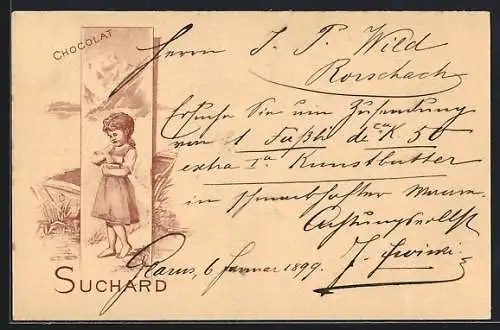 CHOCOLAT
SUCHARD
Herrn J. P. Wild
Rorschach
Ersuche Sie um Zusendung
von 1 Fäßli de ca K. 50
extra Ia Kunstbutter
in schmackhafter Waare
Achtungsvollst
Glarus, 6 Januar 1899. J.